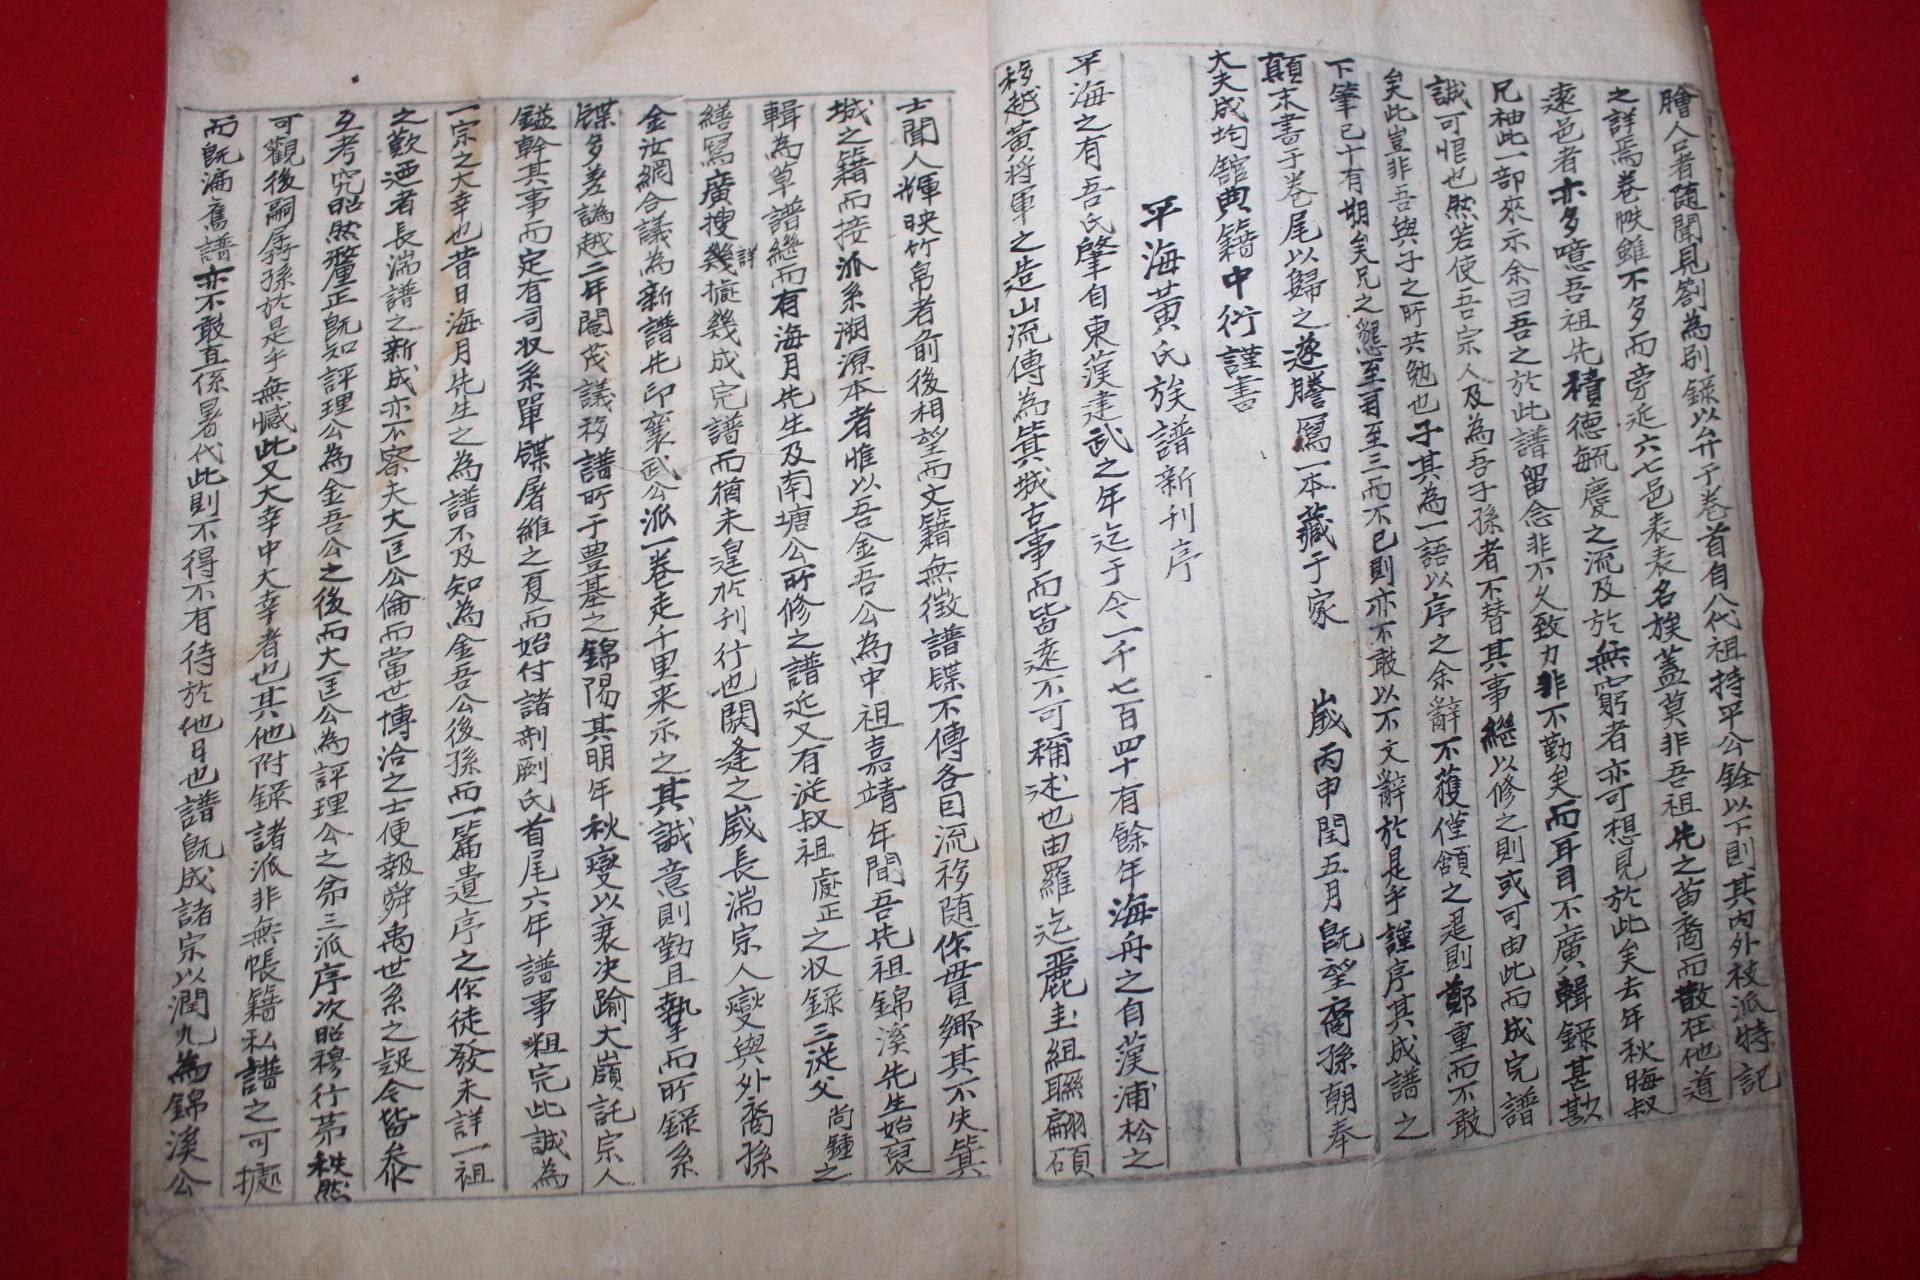 膾人口者随聞見劄為別錄以弁于卷首自八代祖持平公銓以下則其內外枝派特記
之詳焉卷帙雖不多而旁近六七邑表表名族蓋莫非吾祖先之苗裔而散在他道
遠邑者亦多噫吾祖先積德毓慶之流及於無窮者亦可想見於此矣去年秋晦叔
兄袖此一部來示余曰吾之於此譜留念非不久致力非不勤矣而耳目不廣輯錄甚歎
誠可恨也然若使吾宗人及為吾子孫者不替其事繼以修之則或可由此而成完譜
矣此豈非吾與子之所共勉也子其為一語以序之余辭不獲僅頷之是則鄭重而不敢
下筆已十有期矣兄之懇至再至三而不已則亦不敢以不文辭於是乎謹序其成譜之
顛末書于卷尾以歸之遂謄寫一本藏于家 歲丙申閏五月旣望裔孫朝奉
大夫成均舘典籍中衍謹書
平海黃氏族譜新刊序
平海之有吾氏肇自東漢建武之年迄于今一千七百四十有餘年海舟之自漢浦松之
移越黃將軍之造山流傳為箕城古事而皆遠不可稱述也由羅迄麗圭組聯翩碩
士聞人輝映竹帛者前後相望而文籍無徵譜牒不傳各自流移随作貫鄉其不失箕
城之籍而接派系溯源本者惟以吾金吾公為中祖嘉靖年間吾先祖錦溪先生始裒
輯為草譜繼而有海月先生及南塘公所修之譜近又有從叔祖處正之収錄三從父尚鍾之
繕寫廣搜幾詳攄幾成完譜而猶未遑於刊行也閼逢之歲長湍宗人燮與外裔孫
金汝綱合議為新譜先印襄武公派一卷走千里来示之其誠意則勤且摯而所錄系
牒多差譌越二年閹茂議移譜所于豊基之錦陽其明年秋燮以衰决踰大嶺託宗人
鎰幹其事而定有司収系單牒屠維之夏而始付諸剞劂氏首尾六年譜事粗完此誠為
一宗之大幸也昔日海月先生之為譜不及知為金吾公後孫而一篇遺序之作徒發未詳一祖
之歎迺者長湍譜之新成亦不察夫大匡公倫而當世博洽之士便報舜禹世系之疑今皆叅
互考究昭然釐正旣知評理公為金吾公之後而大匡公為評理公之弟三派序次昭穆行第秩然
可觀後嗣孱孫於是乎無憾此又大幸中大幸者也其他附錄諸派非無帳籍私譜之可㨿
而旣漏舊譜亦不敢直係畧代此則不得不有待於他日也譜旣成諸宗以潤九為錦溪公